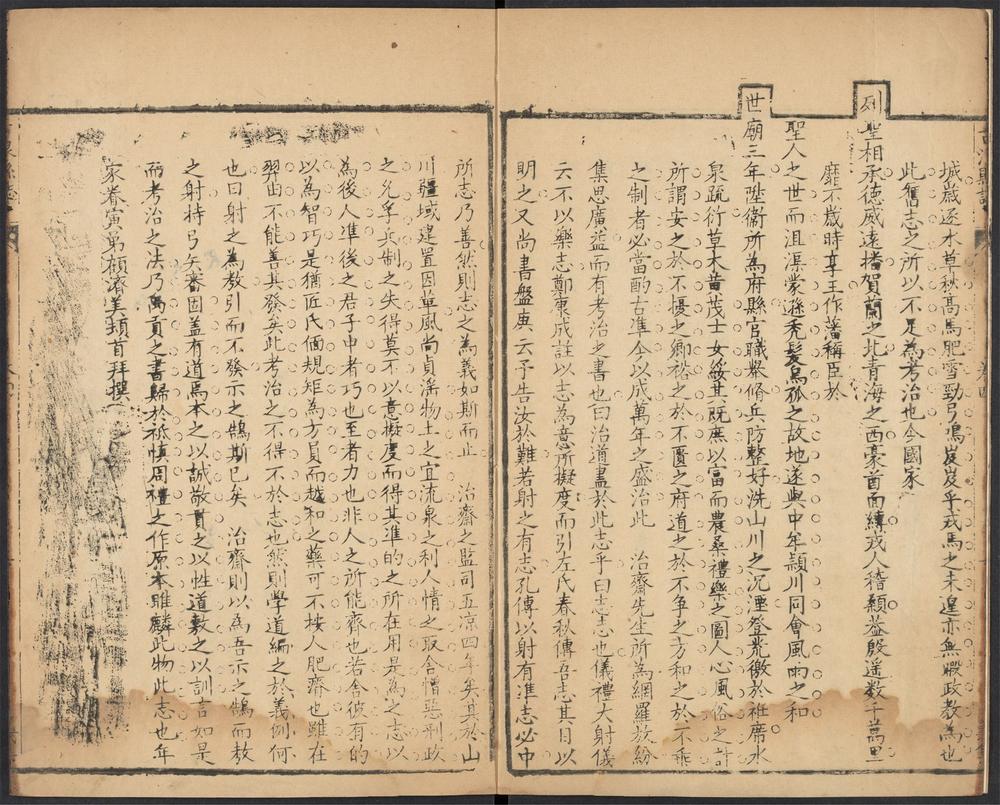 城歲逐水草秋髙馬肥霄勁弓鳴岌岌乎戎馬之未遑亦無暇政教為也
此舊志之所以不足為考治也今國家
列聖相承德威遠播賀蘭之北青海之西豪酋面縛戎人稽顙益殷遥数千萬里
靡不歲時享王作藩稱臣於
聖人之世而沮渠蒙遜秃髮烏孤之故地遂與中年潁川同會風雨之和
世廟三年陞衞所為府縣官職舉脩兵防整好洗山川之沉湮登荒徼於袵席水
泉疏衍草木茁茂士女綏其既庶以富而農桑禮樂之圖人心風俗之計
所謂安之於不擾之鄉裕之於不匱之府道之於不争之方和之於不乖
之制者必當酌古準今以成萬年之盛治此 治齋先生所為網羅放紛
集思廣益而有考治之書也曰治道盡於此志乎曰志志也儀禮大射儀
云不以樂志鄭康成註以志為意所擬度而引左氏春秋傳吾志其目以
明之又尚書盤庚云予告汝於難若射之有志孔傳以射有準志必中
所志乃善然則志之為義如斯而止 治齋之監司五凉四年矣其於山
川疆域建置因革風尚貞滛物土之宜流泉之利人情之取舍憎惡刑政
之允孚兵制之失得莫不以意擬度而得其準的之所在用是為之志以
為後人準後之君子中者巧也至者力也非人之所能齊也若舍彼有的
以為智巧是猶匠氏偭規矩為方員而越知之藥可不按人肥瘠也雖在
羿甘不能善其發矣此考治之不得不於志也然則学道編之於義例何
也曰射之為教引而不發示之鵠斯已矣 治齋則以為吾示之鵠而教
之射持弓矢審固盖有道焉本之以誠敬貫之以性道敷之以訓言如是
而考治之法乃禹貢之書歸於祗慎周禮之作原本雎麟此物此志也年
家眷寅弟顧濟美頓首拜撰